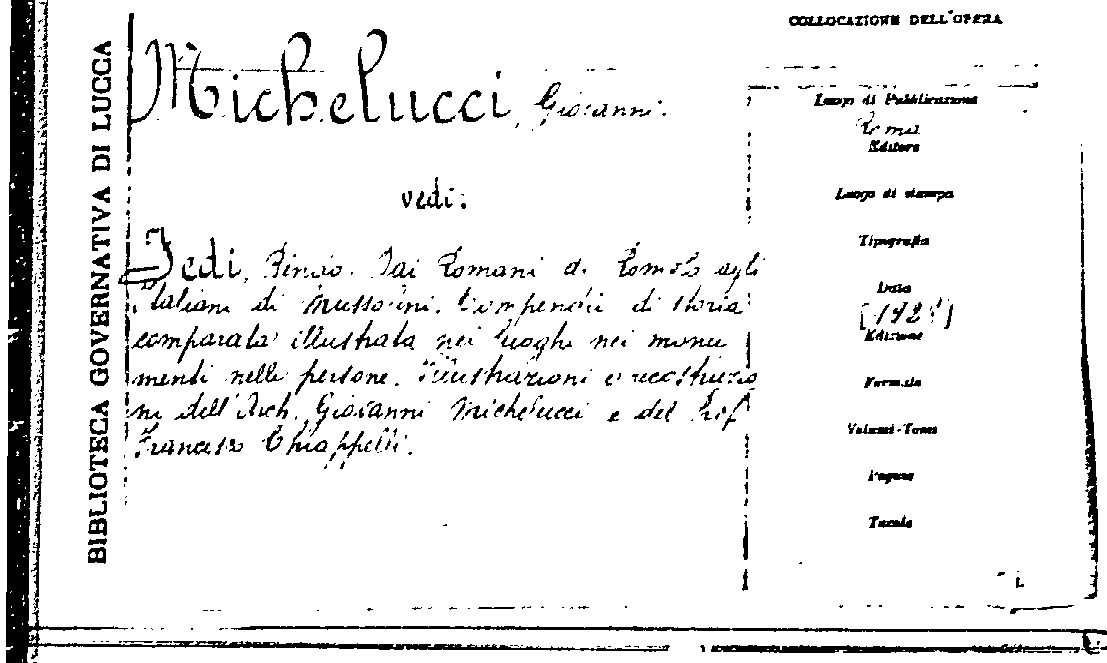 BIBLIOTECA GOVERNATIVA DI LUCCA
Michelucci, Giovanni.
vedi:
Fedi, Pindio. Dai Romani di Romolo agli
Italiani di Mussolini. Compendii di storia
comparata illustrata nei luoghi nei monu
menti nelle persone. Illustrazioni e ricostruzio
ni dell'Arch. Giovanni Michelucci e del Prof
Francesco Chiappelli.
COLLOCAZIONE DELL'OPERA
Luogo di Pubblicazione
Roma
Editore
Luogo di stampa
Tipografia
Data
Edizione
Formato
Volumi-Tomi
Pagine
Tavole